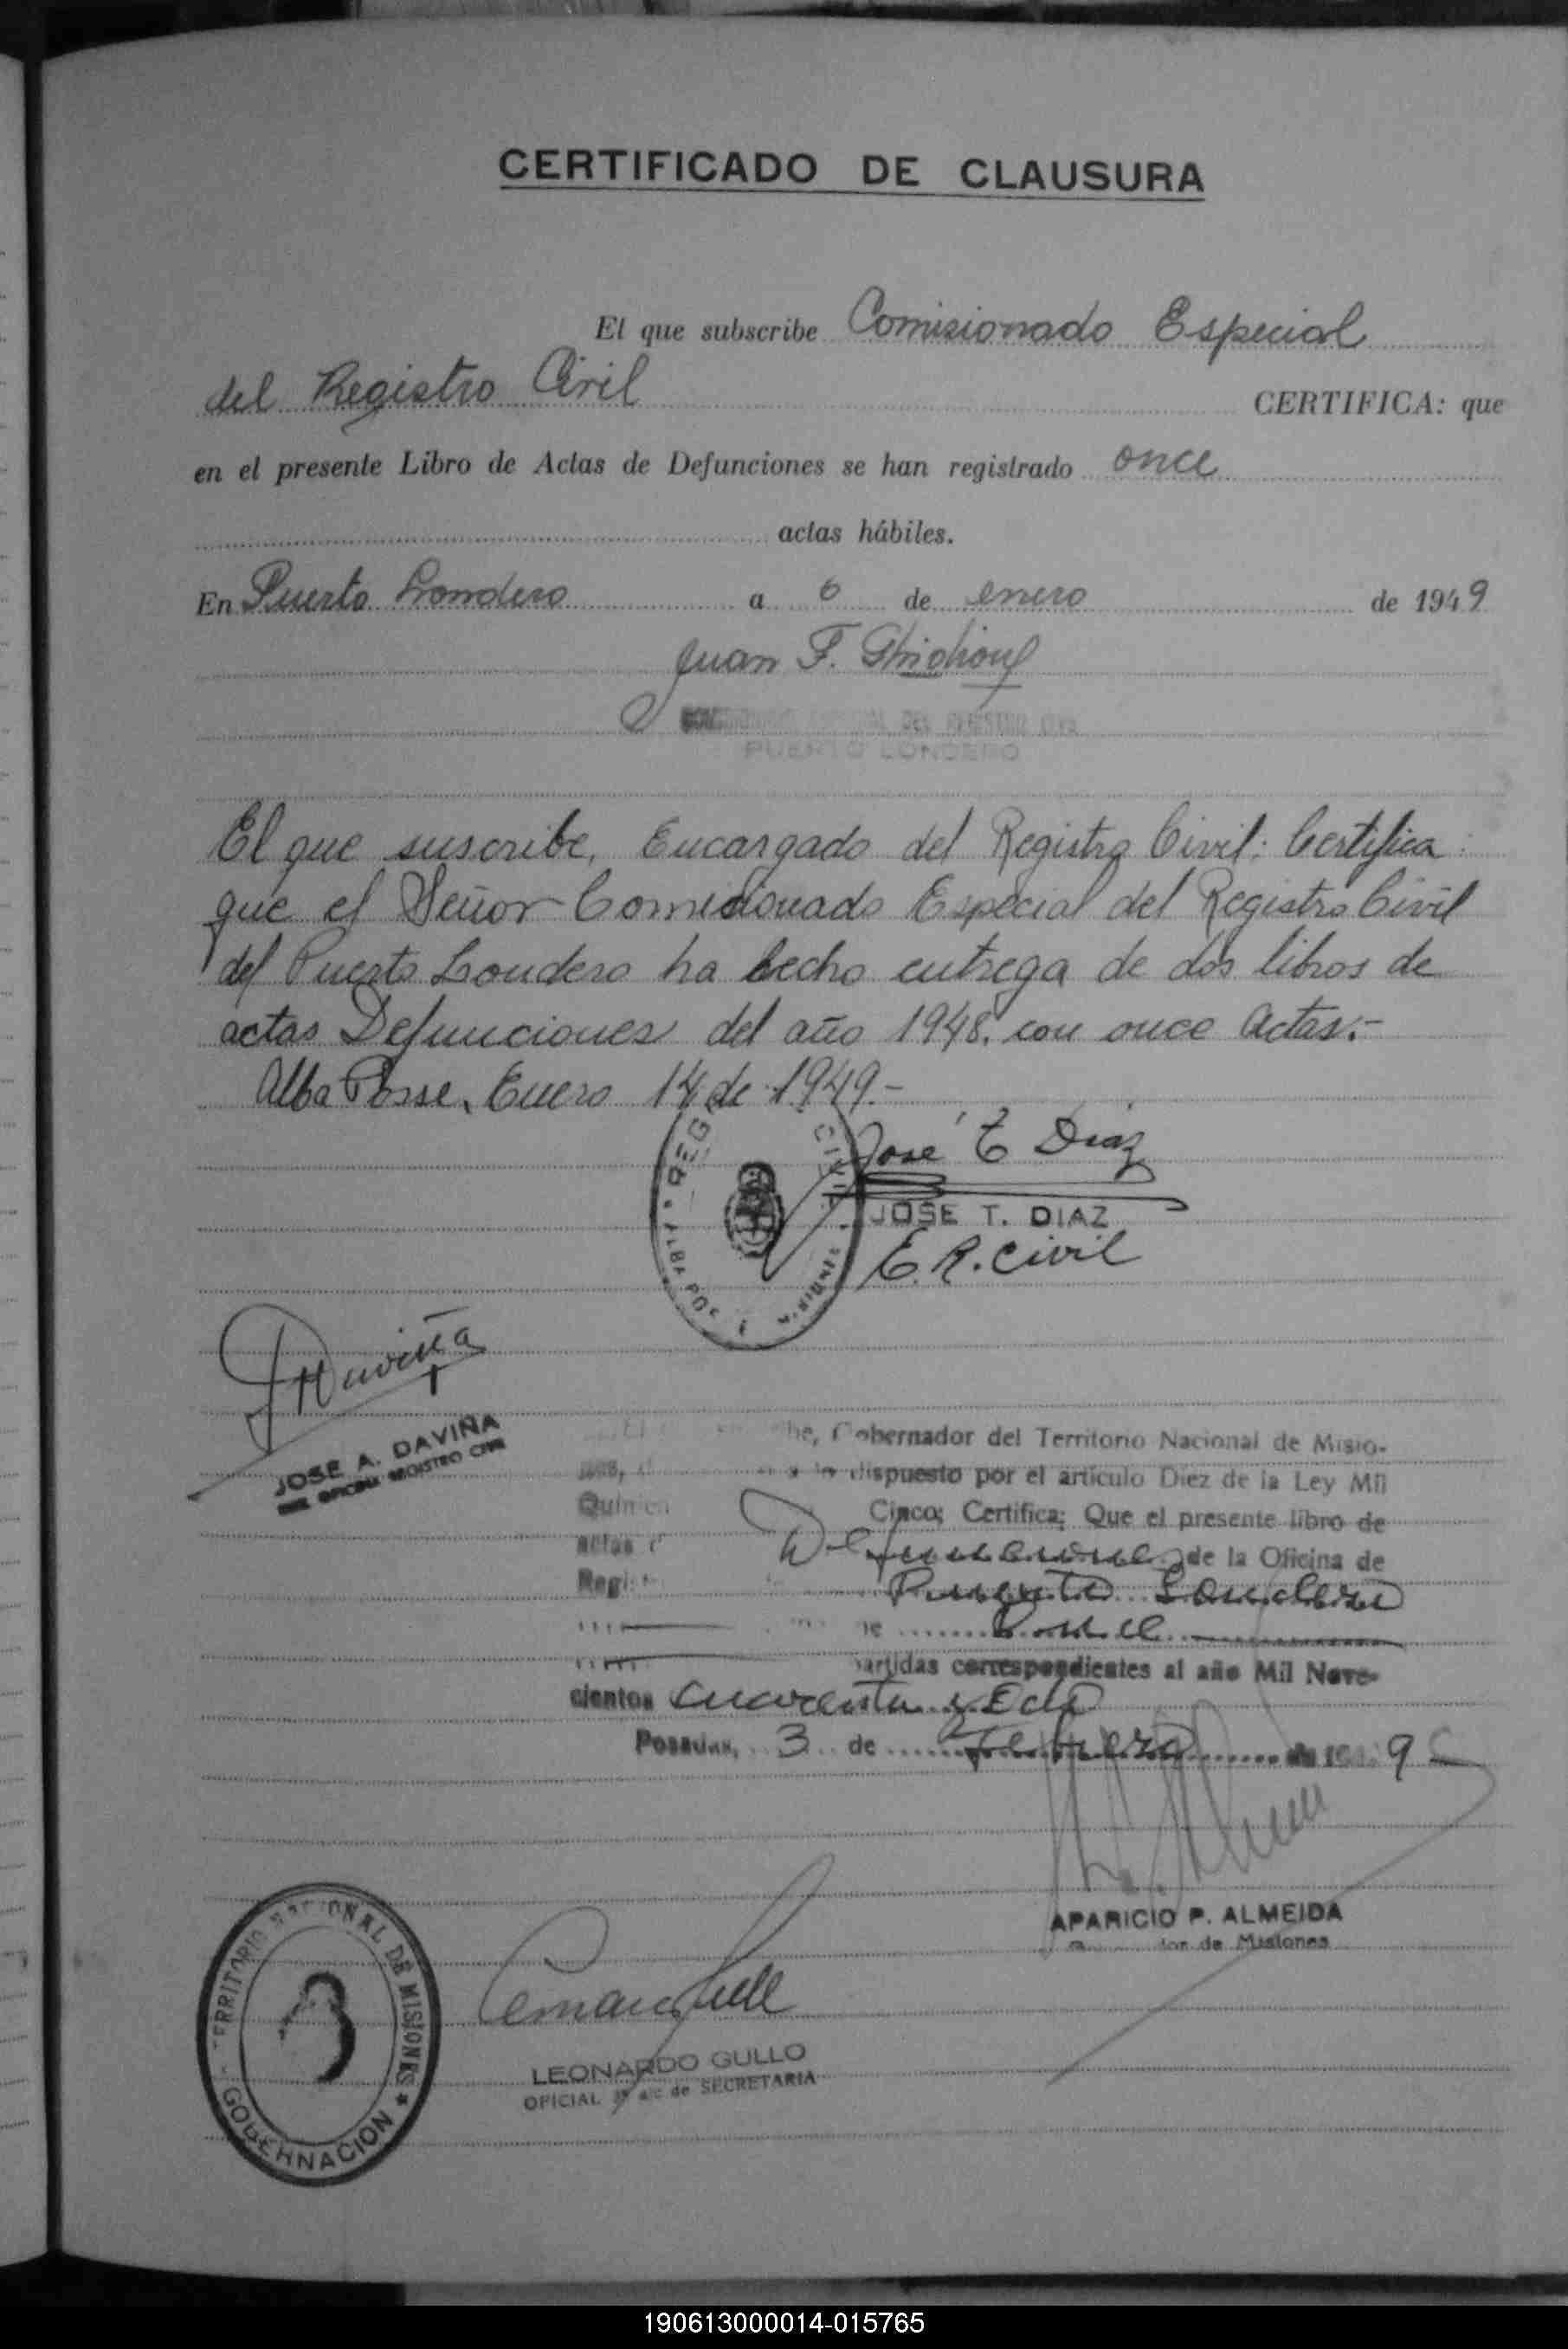 CERTIFICADO DE CLAUSURA
El que subscribe Comisionado Especial
del Registro Civil CERTIFICA: que
en el presente Libro de Actas de Defunciones se han registrado once
actas hábiles.
En Puerto Londero a 6 de enero de 1949
Juan F.
ESPECIAL DEL REGISTRO CIVIL
PUERTO LONDERO
El que suscribe, Encargado del Registro Civil: Certifica:
que el Señor Comisionado Especial del Registro Civil
del Puerto Londero ha hecho entrega de dos libros de
actas Defunciones del año 1948. con once Actas.-
Alba Posse, Enero 14 de 1949.-
José T Diaz
JOSE T. DIAZ
E. R. Civil
JDaviña
JOSE A. DAVIÑA
OFICINA REGISTRO CIVIL
Gobernador del Territorio Nacional de Misio-
nes, dispuesto por el artículo Diez de la Ley Mil
Cinco; Certifica: Que el presente libro de
actas Defunciones de la Oficina de
Puerto Londero
once
partidas correspondientes al año Mil Nove-
cientos cuarenta y Ocho
Posadas, 3 de Febrero de 1949
APARICIO P. ALMEIDA
de Misiones
TERRITORIO NACIONAL DE MISIONES
GOBERNACION
LEONARDO GULLO
OFICIAL a/c de SECRETARIA
190613000014-015765